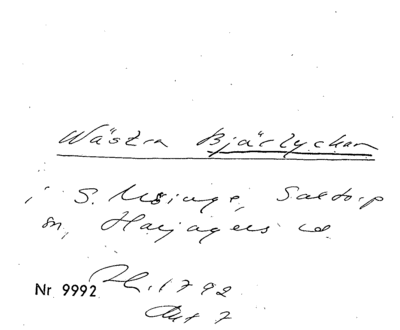 Wästra Bjärlyckan
i S. Möinge, Saxtorp
sn, Harjagers hd
Nr 9992
Lm. 1792
Akt 7